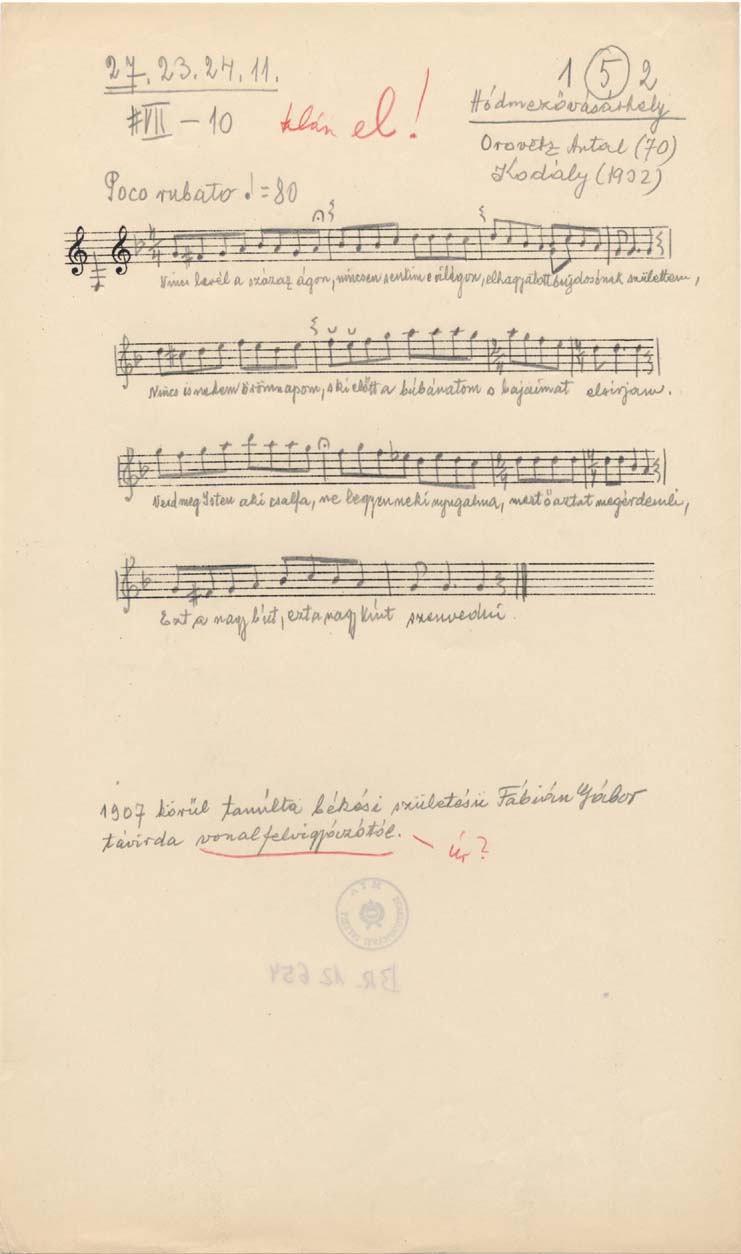 27. 23. 24. 11.
1 5 2
#VII – 10
el!
Hódmezővásárhely
Antal (70)
Kodály (1932)
Poco rubato ♩ = 80
Nincs levél a száraz ágon, nincsen senkim e világon, elhagyatott bujdosónak születtem,
Nincs is nekem örömnapom, aki előtt a búbánatom s bajaimat elsirjam.
Verd meg Isten aki csalfa, ne legyen neki nyugalma, mert ő aztat megérdemli,
Ezt a nagy bút, ezt a nagy kínt szenvedni.
1907 körül tanulta békési születésü Fábián Gábor
távirda vonalfelvigyázótól.
úr?
BR 12654